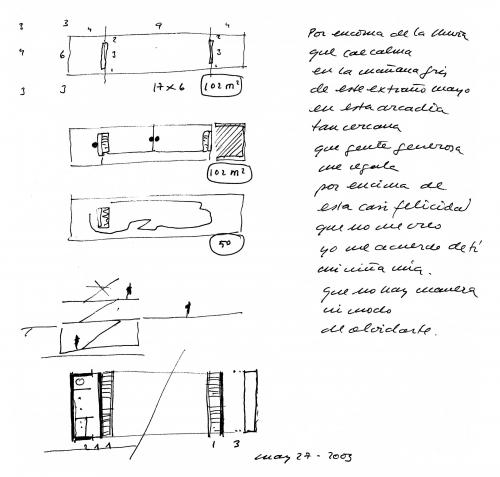 3 3 4 9 4
2 2
4 6 3 3
3 3
17 x 6 102 m²
102 m²
50
2 1 1 1 3
Por encima de la lluvia
que cae calma
en la mañana gris
de este extraño mayo
en esta arcadia
tan cercana
que gente generosa
me regala
por encima de
esta casi felicidad
que no me creo
yo me acuerdo de ti
mi niña mía.
que no hay manera
ni modo
de olvidarte.
may 27 - 2003